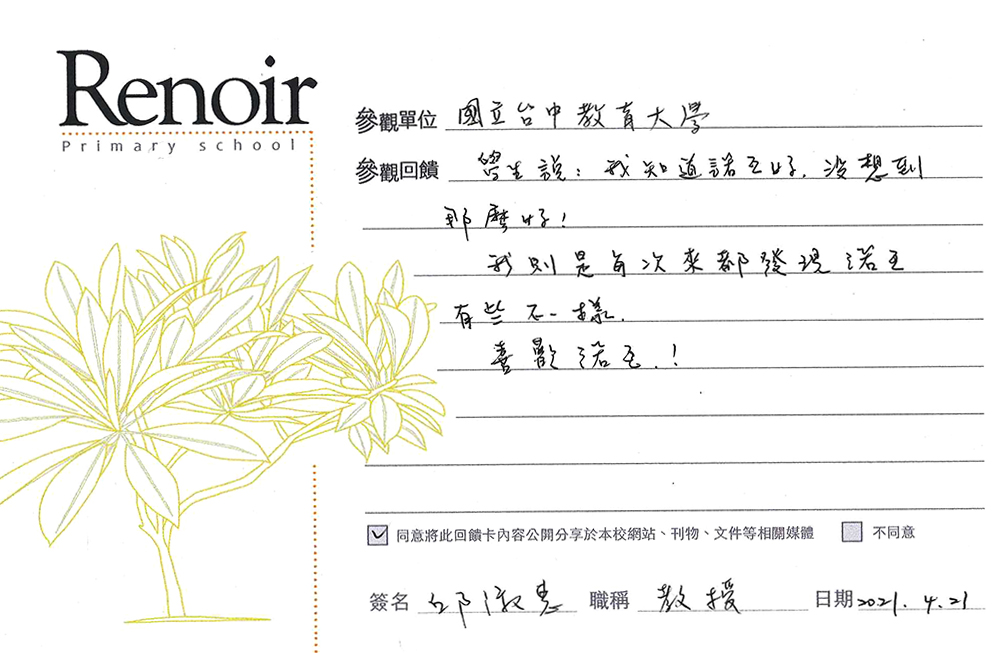 Renoir
Primary school
參觀單位 國立台中教育大學
參觀回饋 學生說：我知道諾瓦好，沒想到
那麼好！
我則是每次來都發現諾瓦
有些不一樣，
喜歡諾瓦！
同意將此回饋卡內容公開分享於本校網站、刊物、文件等相關媒體 不同意
簽名 邱淑惠 職稱 教授 日期 2021.4.21